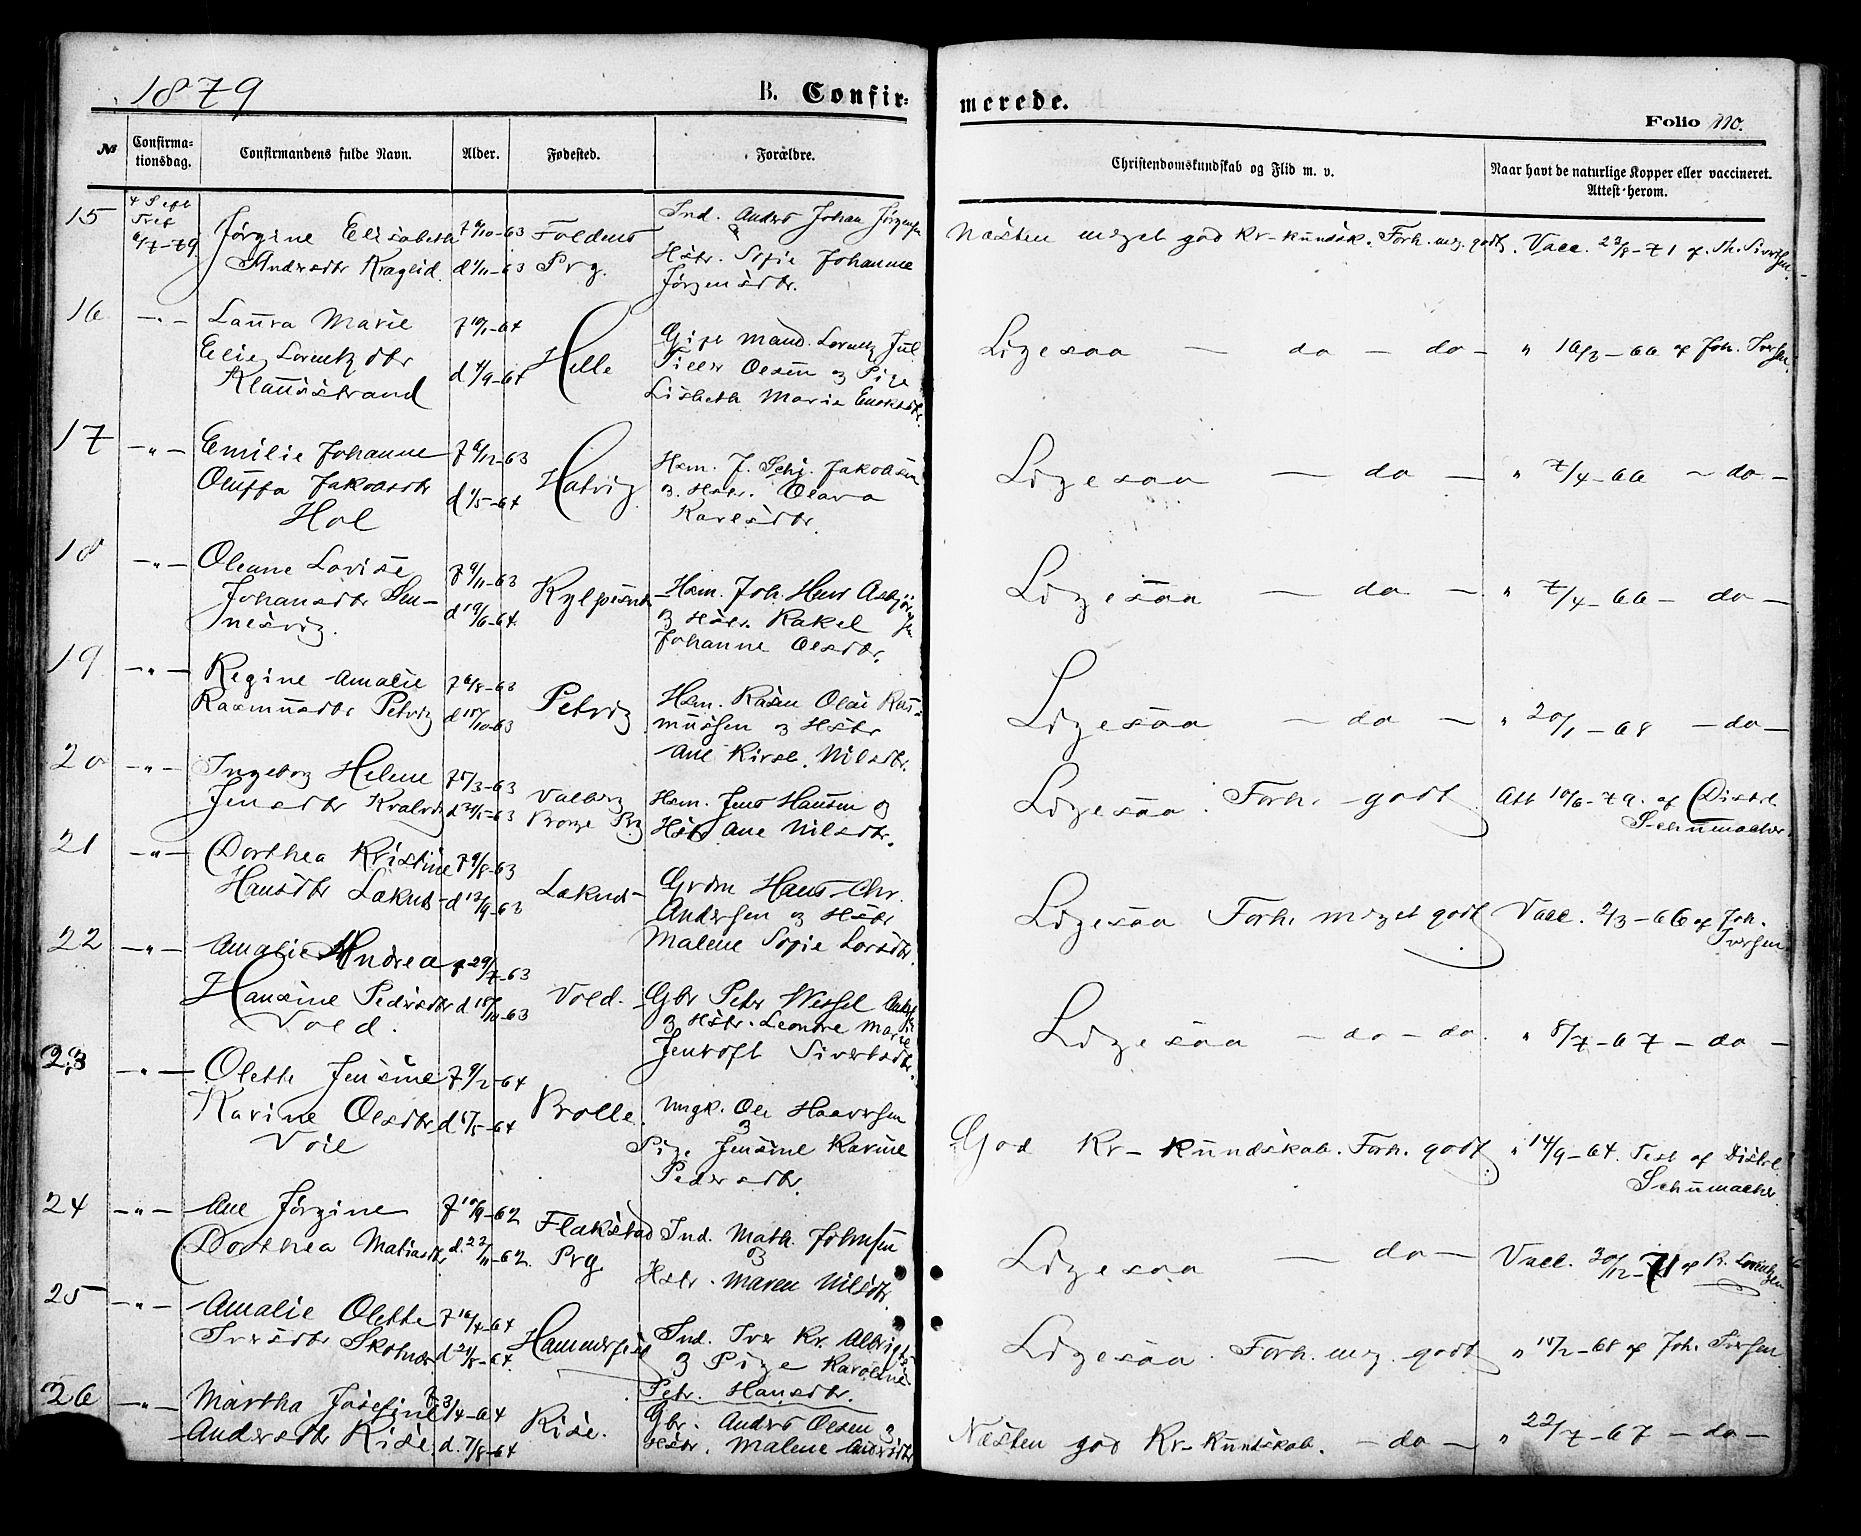 1879
B. Confir-
merede.
Folio 110.
№
Confirma-
tionsdag.
Confirmandens fulde Navn.
Alder.
Fødested.
Forældre.
Christendomskundskab og Flid m. v.
Naar havt de naturlige Kopper eller vaccineret.
Attest herom.
15
6/7-79
Jørgine Elisabeth
Andersdtr
d 1/11-63
Foldens
Prg.
Ind. Anders Johan
Hstr. Sofie Johanne
Jørgensdtr.
Næsten meget god Kr-kundsk. Forh. meg. godt. Vacc. 23/8-71 af
16
-"-
Laura Marie
Lorentzdtr
Klausstrand
Helle
Gift mand. Lorentz Jul
Olsen og Pige
Lisbeth Marie
Ligesaa - do - do -
" 16/3-66 af Joh. Iversen
17
-"-
Emilie Johanne
Oluffa Jakobsdtr
Hol
f 6/12-63
d 1/5-64
Hatvig
Hsm. J. Schj. Jakobsen
og Hstr. Olava
Karlsdtr.
Ligesaa - do -
" 7/4-66 - do -
18
-"-
Oleane Lovise
Johansdtr
f 9/11-63
d 19/6-64.
Hsm. Joh. Hans
og Hstr. Rakel
Johanne Olsdtr.
Ligesaa - do -
" 7/4-66 - do -
19
-"-
Regine Amalie
Rasmusdtr Petvig
f 6/8-63
d 18/10-63
Petvig
Hsm. Olai Ras-
mussen og Hstr
Ane Kirst. Nilsdtr.
Ligesaa - do -
" 20/1-68 - do -
20
-"-
Ingeborg Helene
Jensdtr
Valberg
Borge Prg
Hsm. Jens Hansen og
Hstr Ane Nilsdtr.
Ligesaa. Forh. godt.
Att 10/6-79. af Distrl
Schumacher.
21
-"-
Dorthea Kristine
Hansdtr Laknes
f 9/8-63
d 13/9-63
Laknes
Grdm Hans Chr.
Andersen og Hstr
Malene Sofie Larsdtr.
Ligesaa Forh. meget godt
Vacc. 2/3-66 af Joh.
Iversen
22
-"-
Amalie Andrea
Hansine Pedersdtr
Vold.
f 29/7-63
d 18/10-63
Vold.
Gbr Peter Wessel
og Hstr. Leonore Marie
Jentoft Sivertsdtr.
Ligesaa - do - do.
" 8/7-67 - do -
23
-"-
Olette Jensine
Karine Olsdtr
Voie
f 9/2-64
d 15/5-64
Brolle.
Ungk. Ole Haaversen
og
Pige Jensine Karine
Pedersdtr.
God Kr-kundskab. Forh. godt.
" 14/9-64. Test af Distrl
Schumacher
24
-"-
Ane Jørgine
Dorthea Matiasdtr
f 10/9-62
d. 23/11-62.
Flakstad
Prg
Ind. Math. Johnsen
og
Hstr. Maren Nilsdtr.
Ligesaa - do -
Vacc. 30/12-71 af R. Lorentzen
25
-"-
Amalie Olette
Iversdtr Skotnes
f 16/4-64
d 21/8-64.
Hammerfest
Ind. Iver Kr. Albrigts.
og Pige Karoline
Petr. Hansdtr.
Ligesaa. Forh. meg. godt
" 15/2-68 af Joh. Iversen.
26
-"-
Martha Josefine
Andersdtr Rise
3/4-64
d. 7/8-64
Rise.
Gbr. Anders Olsen og
Hstr. Malene Andersdtr
Næsten god Kr-kundskab. - do -
" 22/7-67 - do -